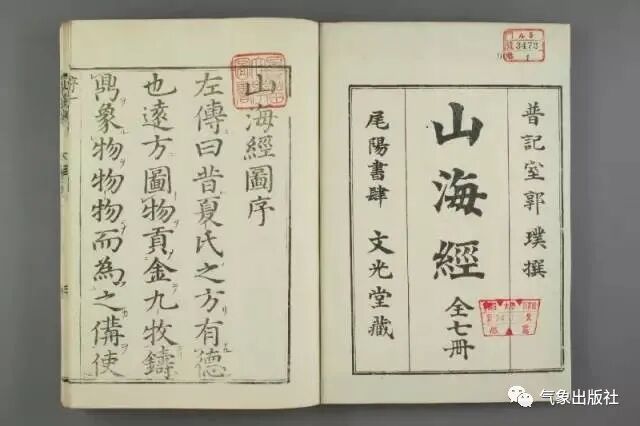 晋記室郭璞撰
山海經
全七冊
尾陽書肆 文光堂藏
3473
1
山海經圖序
左傳曰昔夏氏之方有德
也遠方圖物貢金九牧鑄
鼎象物物物而為之備使
气象出版社